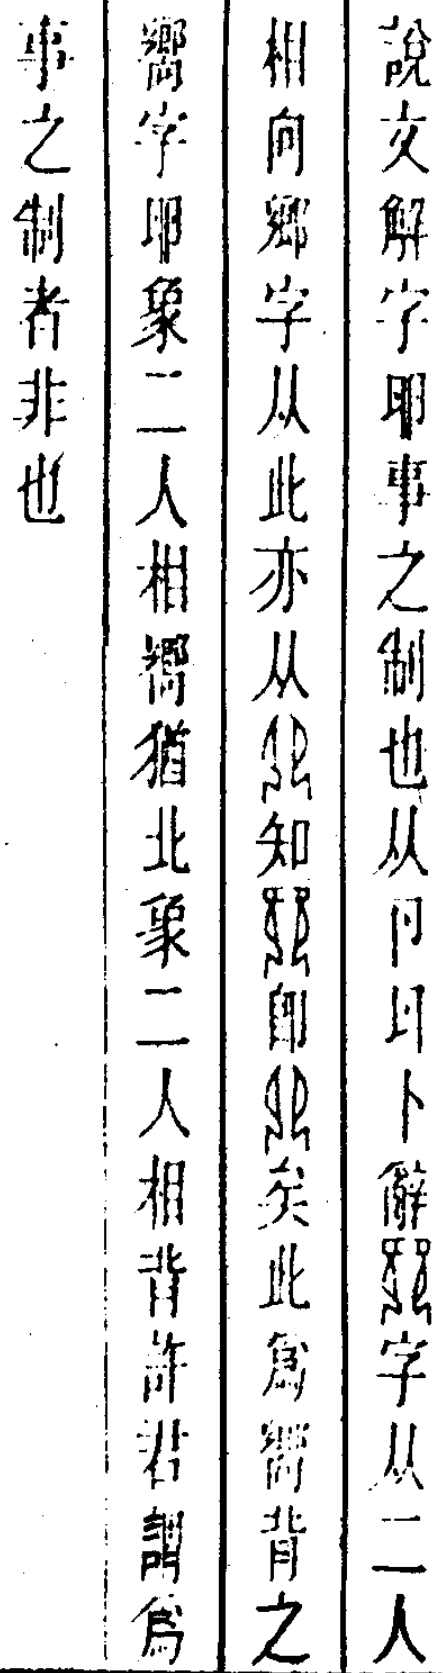 說文解字𠨍事之制也从卪𠨎卜辭字从二人
相向鄉字从此亦从知即矣此爲嚮背之
嚮字𠨍象二人相嚮猶北象二人相背許君謂爲
事之制者非也